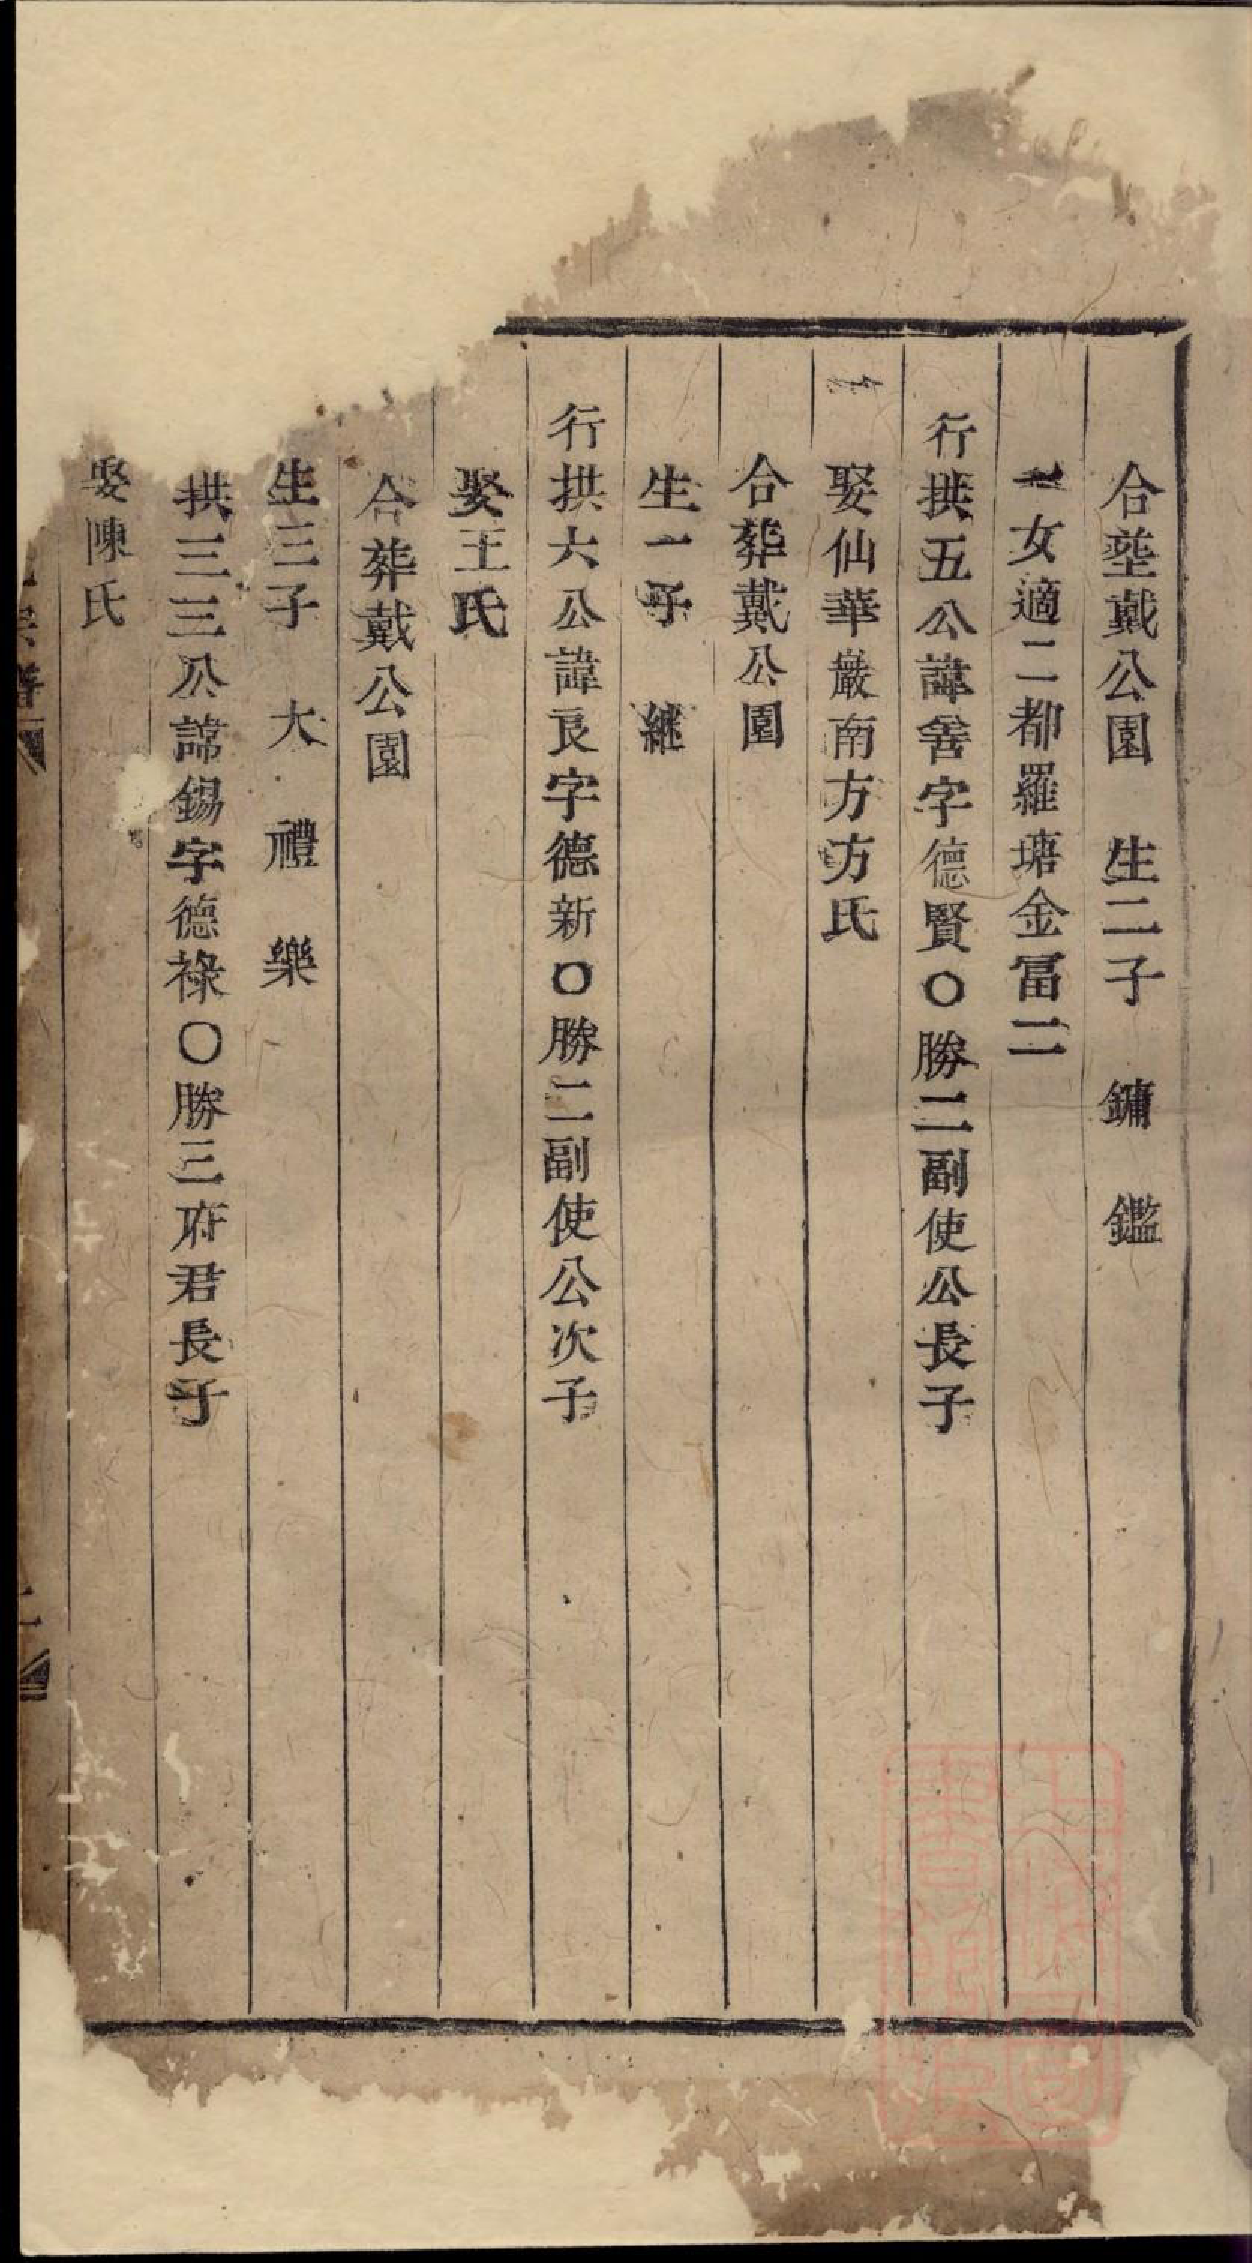 合塟戴公園　生二子　鏞　鑑
一女適二都羅塘金冨二
行拱五公諱善字德賢〇勝二副使公長子
娶仙華巖南方方氏
合葬戴公園
生一子　継
行拱六公諱良字德新〇勝二副使公次子
娶王氏
合葬戴公園
生三子　大　禮　樂
拱三三公諱錫字德祿〇勝三府君長子
娶陳氏
譜